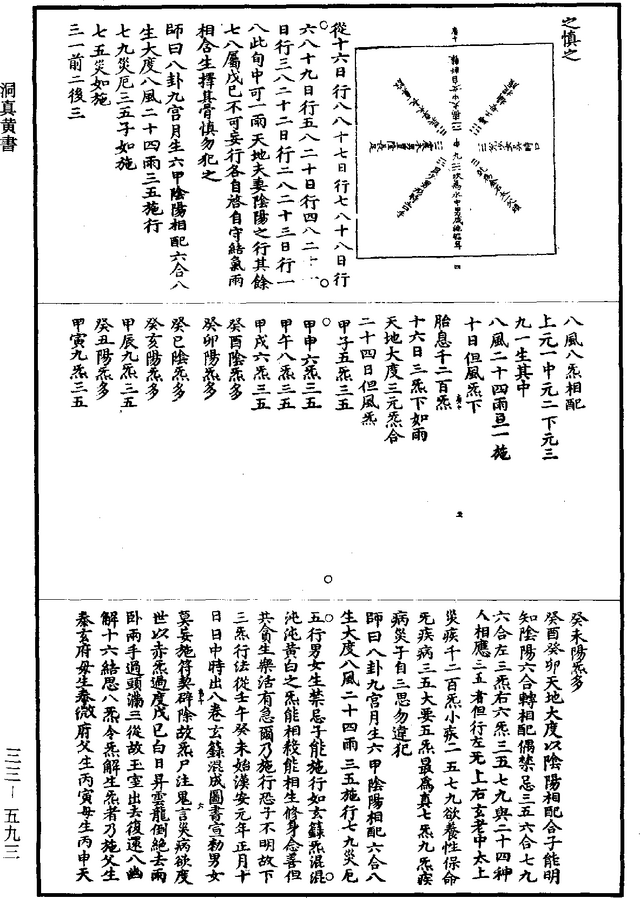 洞真黄書
之慎之
從十六日行八八十七日行七八十八日行
六八十九日行五八二十日行四八二十一
日行三八二十二日行二八二十三日行一
八此旬中可一雨天地夫妻陰陽之行其餘
七八屬戊巳不可妄行各自啓自守結氣雨
相合生擇其骨慎勿犯之
師曰八卦九宮月生六甲陰陽相配六合八
生大度八風二十四雨三五施行
七九災厄三五子如施
七五災如施
三一前二後三
八風八炁相配
上元一中元二下元三
九一生其中
八風二十四雨亘一施
十日但風炁下
胎息千二百炁
十六日三炁下如雨
天地大度三元炁合
二十四日但風炁
甲子五炁三五
甲申六炁三五
甲午八炁三五
甲戌六炁三五
癸酉陰炁多
癸卯陽炁多
癸巳陰炁多
癸亥陽炁多
甲辰九炁三五
癸丑陽炁多
甲寅九炁三五
癸未陽炁多
癸酉癸卯天地大度以陰陽相配合子能明
知陰陽六合轉相配偶禁忌三五六合七九
六合左三炁右六炁三五七九與二十四神
人相應三五者但行左无上右玄老中太上
災疾千二百炁小疾二五七九欲養性保命
死疾病三五大要五炁最爲真七炁九炁疾
病災子自三思勿違犯
師曰八卦九宮月生六甲陰陽相配六合八
生大度八風二十四雨三五施行七九災厄
五行男女生禁忌子能施行如玄籙炁混混
沌沌黄白之炁能相殺能相生修身念善但
共貪生樂活有急爾乃施行恐子不明故下
三炁行法從壬午癸未始漢安元年正月十
日日中時出八卷玄籙混成圖書宣勑男女
莫妄施符契碎除故炁尸注鬼言災病欲度
世以赤炁過度戊巳白日昇雲龍倒絶去兩
卧兩手過頭滿三從故王室出去後還八幽
解十六結思八炁令炁解生炁者乃施父生
泰玄府母生泰微府父生丙寅母生丙申天
三三－五九三